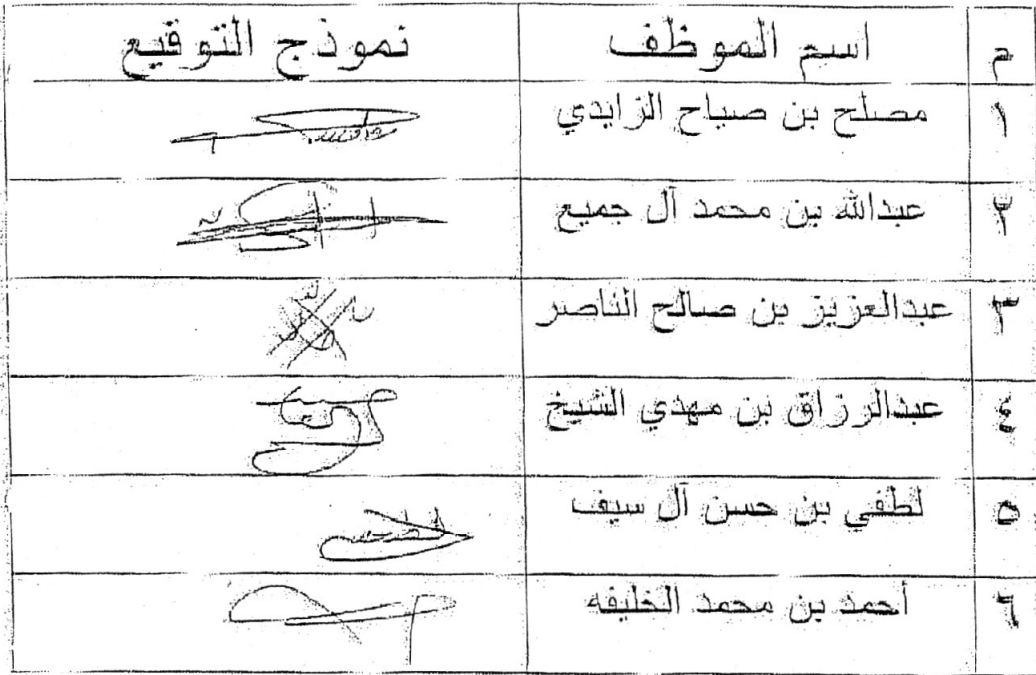 م اسم الموظف نموذج التوقيع
١ مصلح بن صياح الزايدي
٢ عبدالله بن محمد آل جميع
٣ عبدالعزيز بن صالح الناصر
٤ عبدالرزاق بن مهدي الشيخ
٥ لطفي بن حسن آل سيف
٦ أحمد بن محمد الخليفه